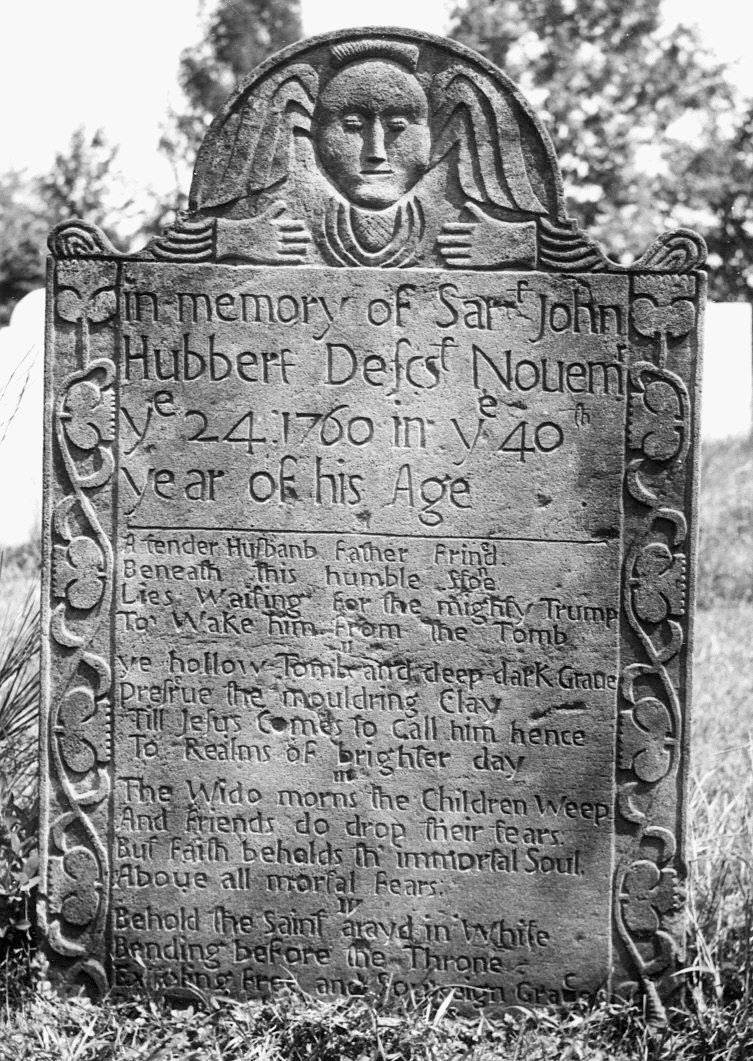 In memory of Sarᵗ John
Hubbert Deſcsᵗ Nouemʳ
yᵉ 24. 1760 in yᵉ 40ᵗʰ
year of his Age
A tender Huſbanb Father Frinᵈ.
Beneath this humble ſtoⁿe
Lies waiting for the mighty Trump
To Wake him From the Tomb
II
ye hollow Tomb and deep dark Graue
Preſrue the mouldring Clay
Till Jeſus Comes to call him hence
To Realms of brighter day
III
The Wido morns the Children Weep
And friends do drop their tears.
But Faith beholds th' immortal Soul,
Aboue all mortal Fears.
IV
Behold the Saint arayd in White
Bending before the Throne
Extoling Free and Souereign Grace